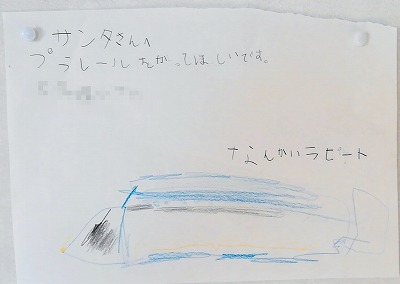 サンタさんへ
プラレールをかってほしいです。
なんかいラピート